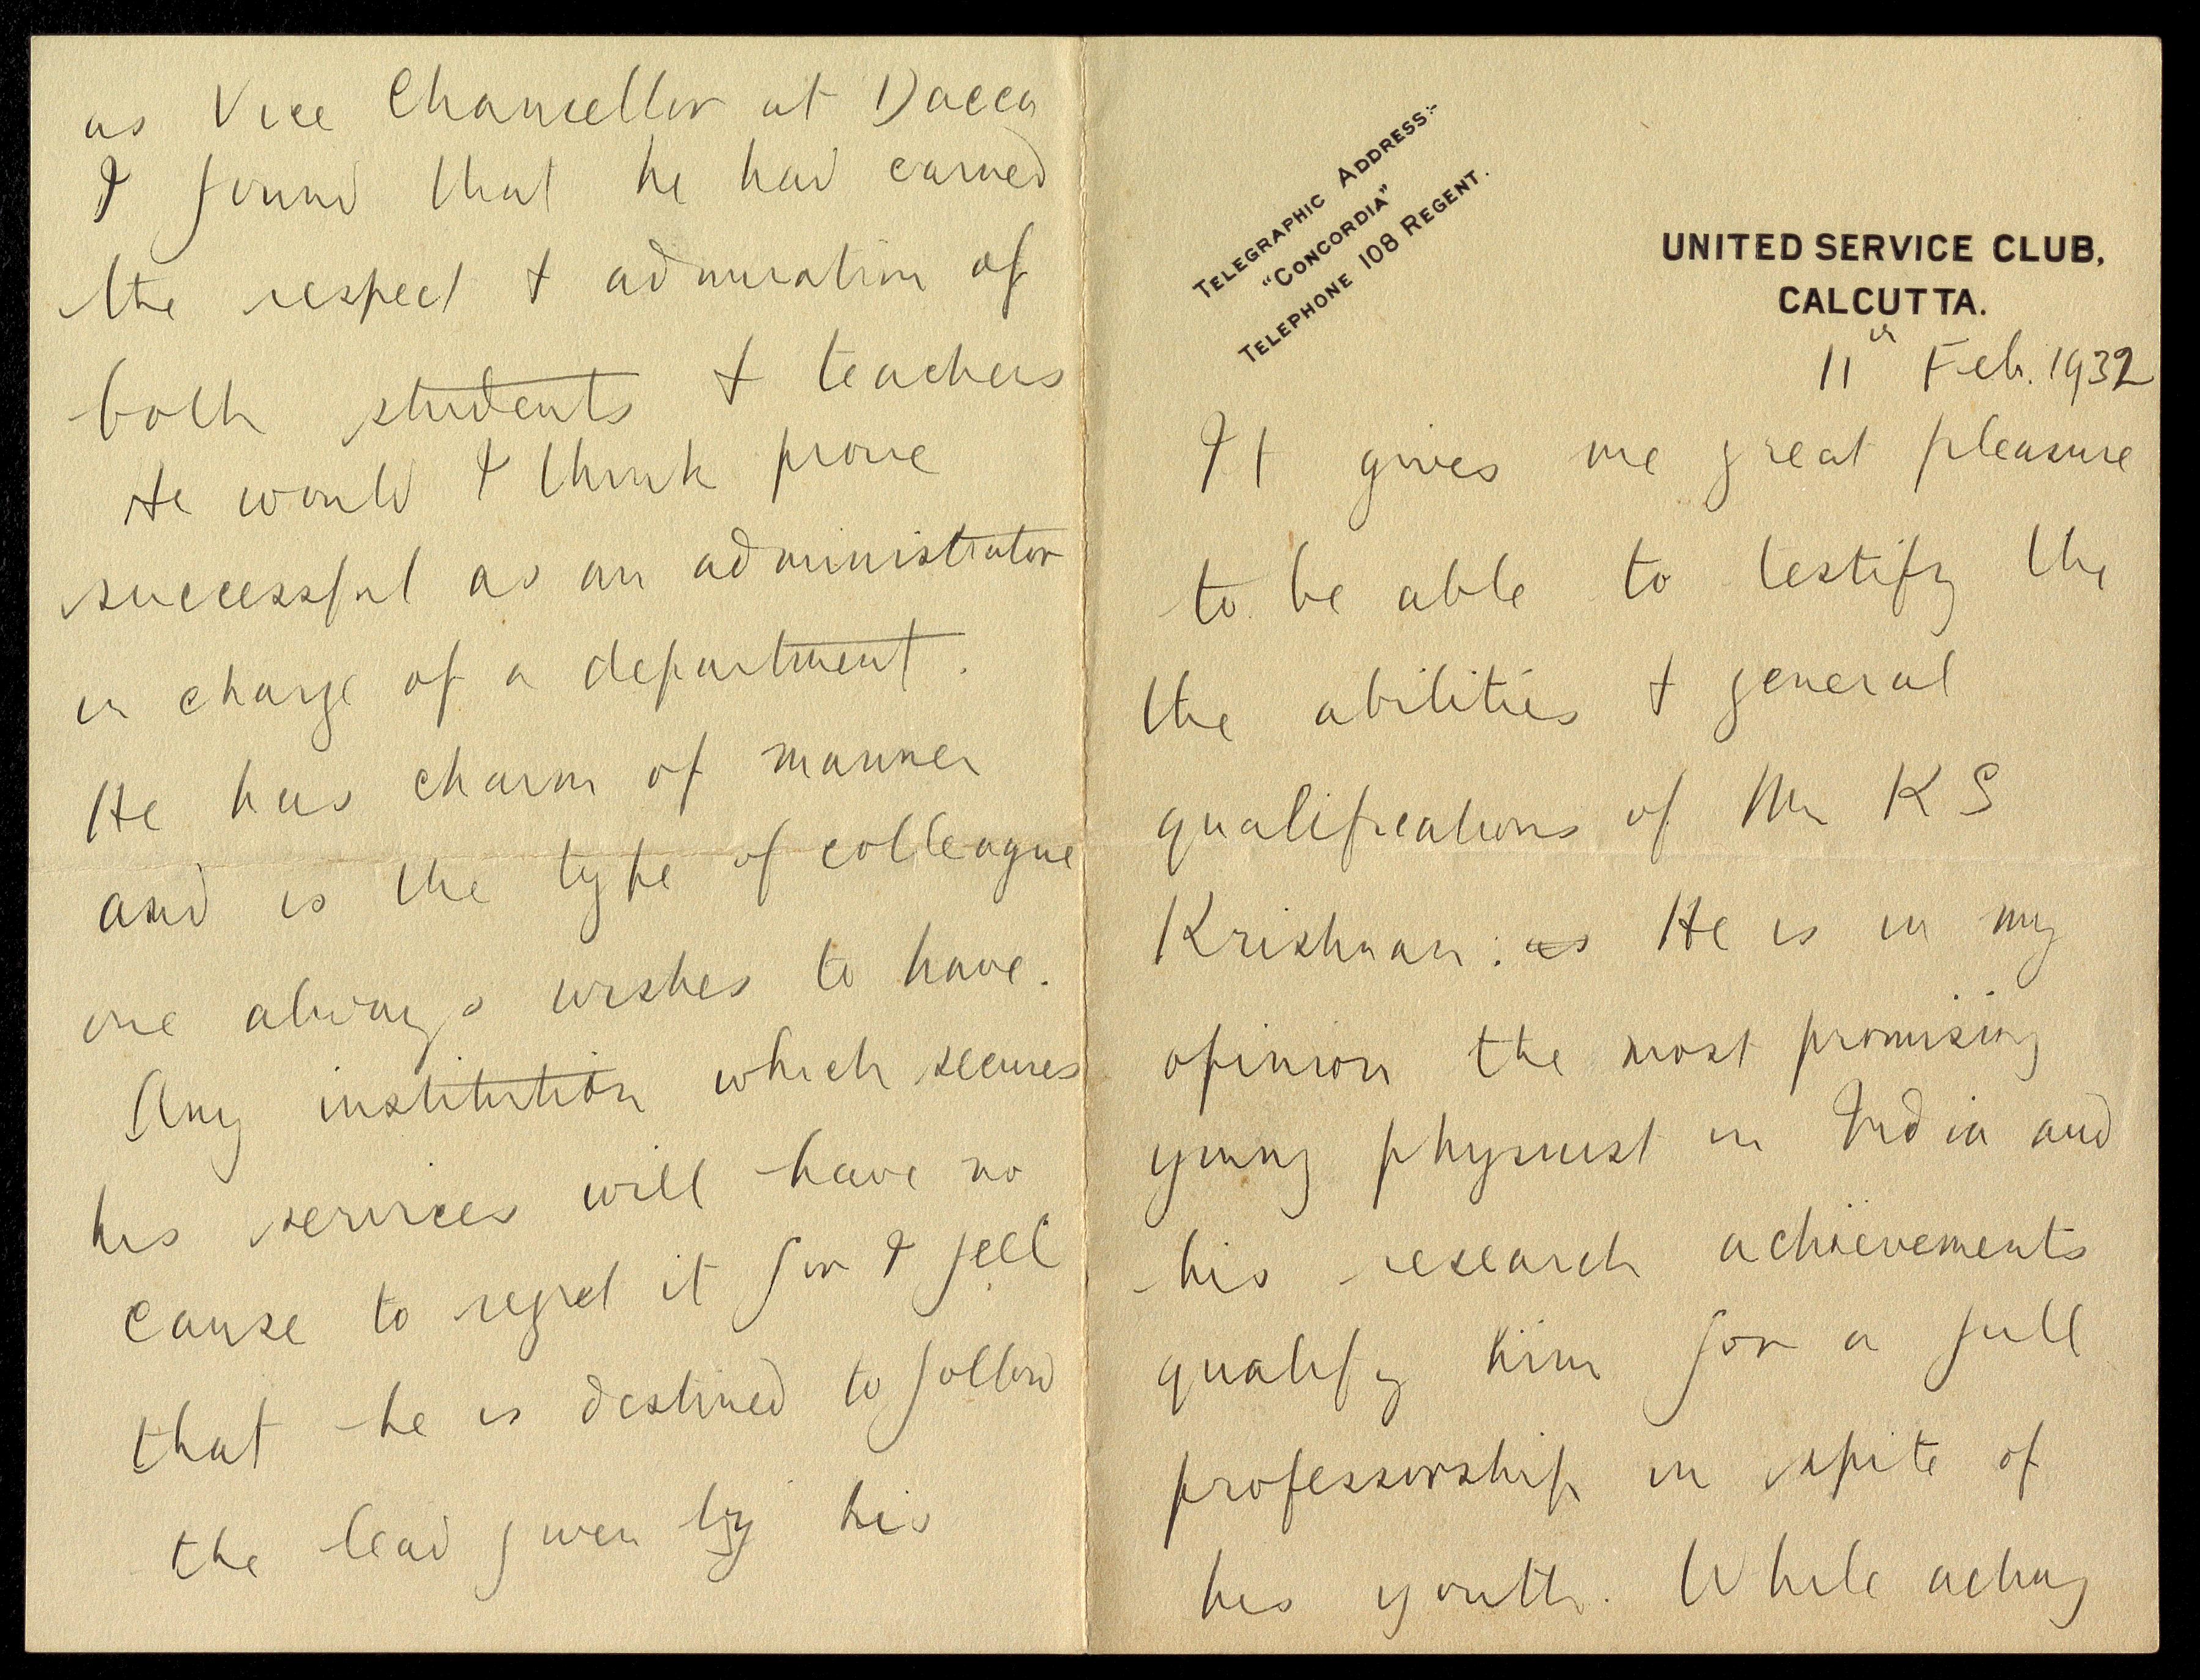 TELEGRAPHIC ADDRESS:-
"CONCORDIA"
TELEPHONE 108 REGENT.
UNITED SERVICE CLUB,
CALCUTTA.
11th Feb. 1932
It gives me great pleasure
to be able to testify the
the abilities & general
qualifications of Mr K S
Krishnan: as He is in my
opinion the most promising
young physicist in India and
his research achievements
qualify him for a full
professorship in spite of
his youth. While acting
as Vice Chancellor at Dacca
I found that he had earned
the respect & admiration of
both students & teachers
He would I think prove
successful as an administrator
in charge of a department.
He has charm of manner
and is the type of colleague
one always wishes to have.
Any institution which secures
his services will have no
cause to regret it for I feel
that he is destined to follow
the lead given by his